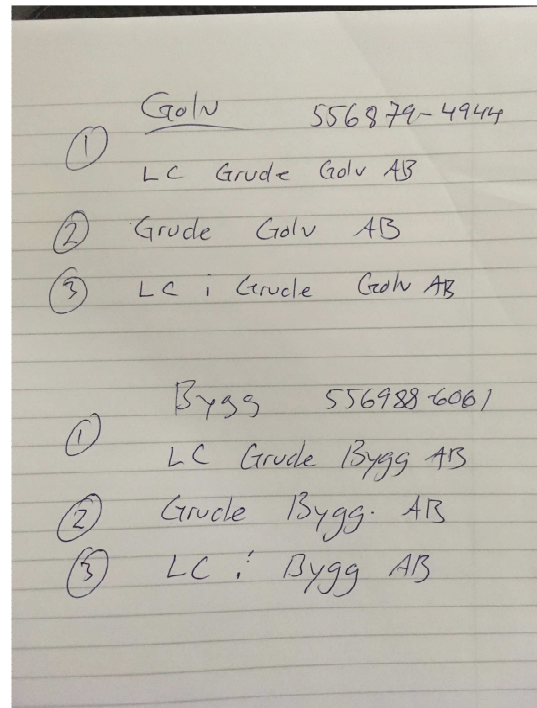 Golv 556879-4944
① LC Grude Golv AB
② Grude Golv AB
③ LC i Grude Golv AB
Bygg 556988-6061
① LC Grude Bygg AB
② Grude Bygg. AB
③ LC i Bygg AB